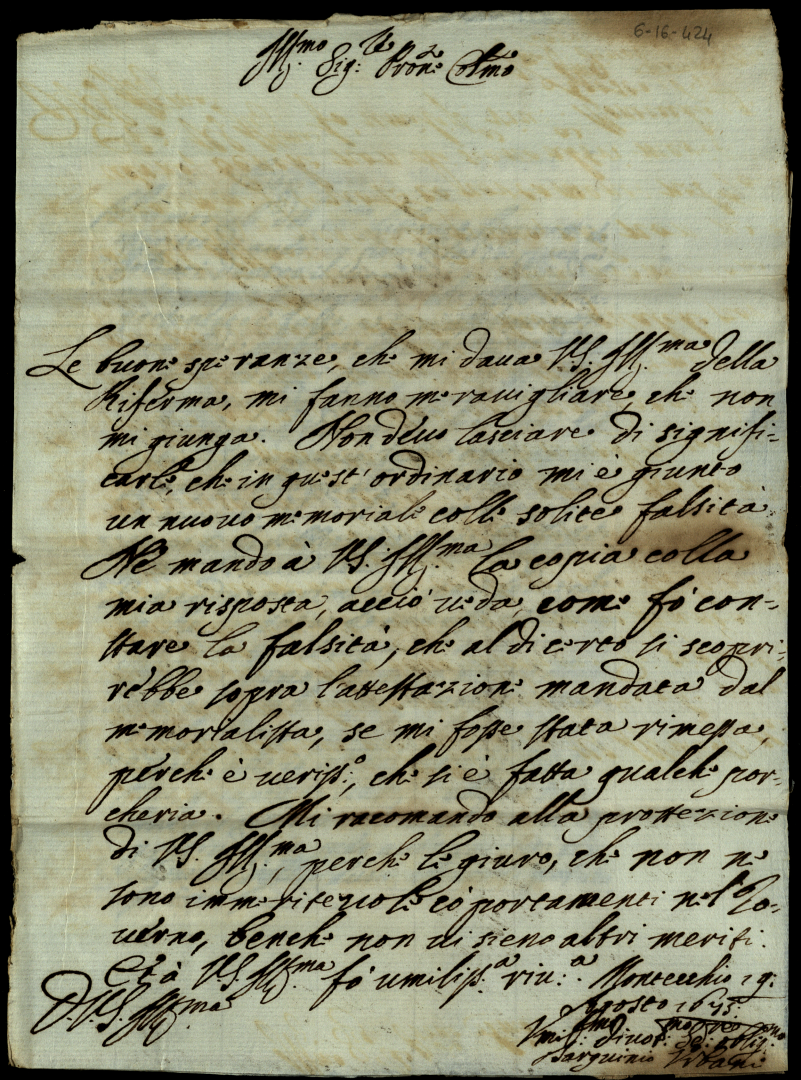 6-16-424
Ill.mo Sig.re Pron.e Col.mo
Le buone speranze, che mi daua V.S. Ill.ma della
Riferma, mi fanno merauigliare, che non
mi giunga. Non deuo lasciare di signifi-
carle, che in quest'ordinario mi è giunto
un nuouo memoriale colle solite falsità
Ne mando à V.S. Ill.ma la copia colla
mia risposta, acciò ueda, come fò con-
stare la falsità, che al di certo si scopri-
rebbe sopra l'attestazione mandata dal
memorialista, se mi fosse stata rimessa,
perche è ueriss.o, che si è fatta qualche por-
cheria. Mi racomando alla protezione
di V.S. Ill.ma, perche le giuro, che non ne
sono immeriteuole co' portamenti nel Go-
uerno, benche non ui sieno altri meriti.
Et à V.S. Ill.ma fò umiliss.a riu.a Montecchio 19.
Agosto
D.V.S. Ill.ma
Vmil.mo Diuot.mo
Tarquinio